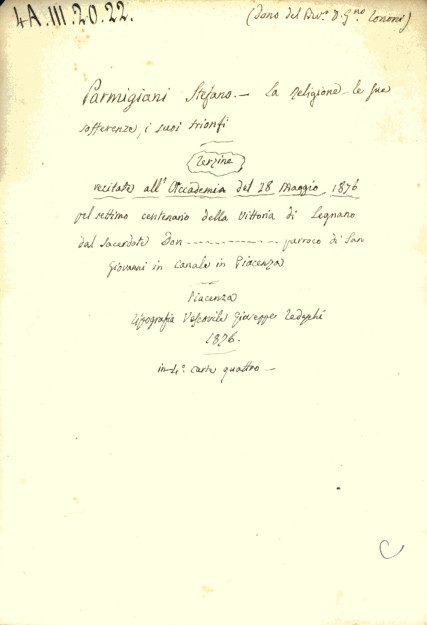 4A.III.20.22.
(Dono del Riv.º D. G.no Cononi)
Parmigiani Stefano. — La Religione le sue
sofferenze, i suoi trionfi
Terzine
recitate all'Accademia del 28 Maggio 1876
pel settimo centenario della Vittoria di Legnano
dal sacerdote Don ------------ parroco di San
Giovanni in Canale in Piacenza
Piacenza
Tipografia Vescovile Giuseppe Tedeschi
1876.
in-4.º carte quattro —
C